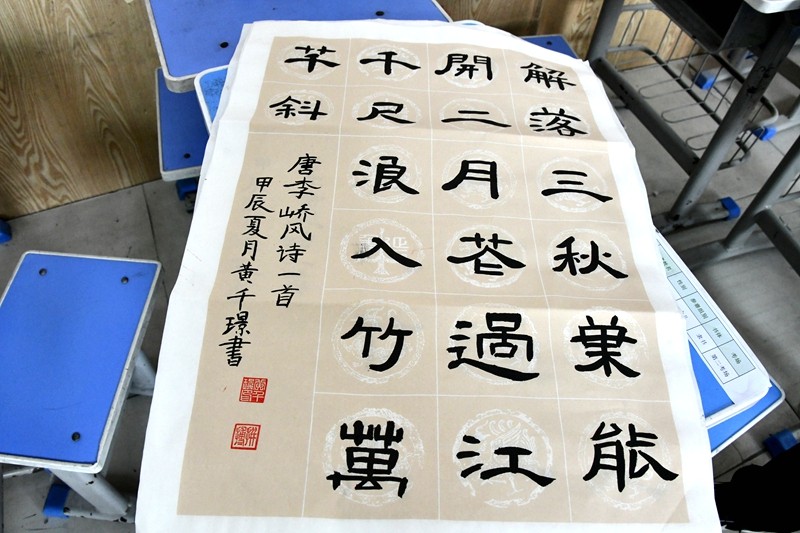 解落三秋葉能
開二月花過江
千尺浪入竹萬
竿斜
唐李峤风诗一首
甲辰夏月黄千璟書